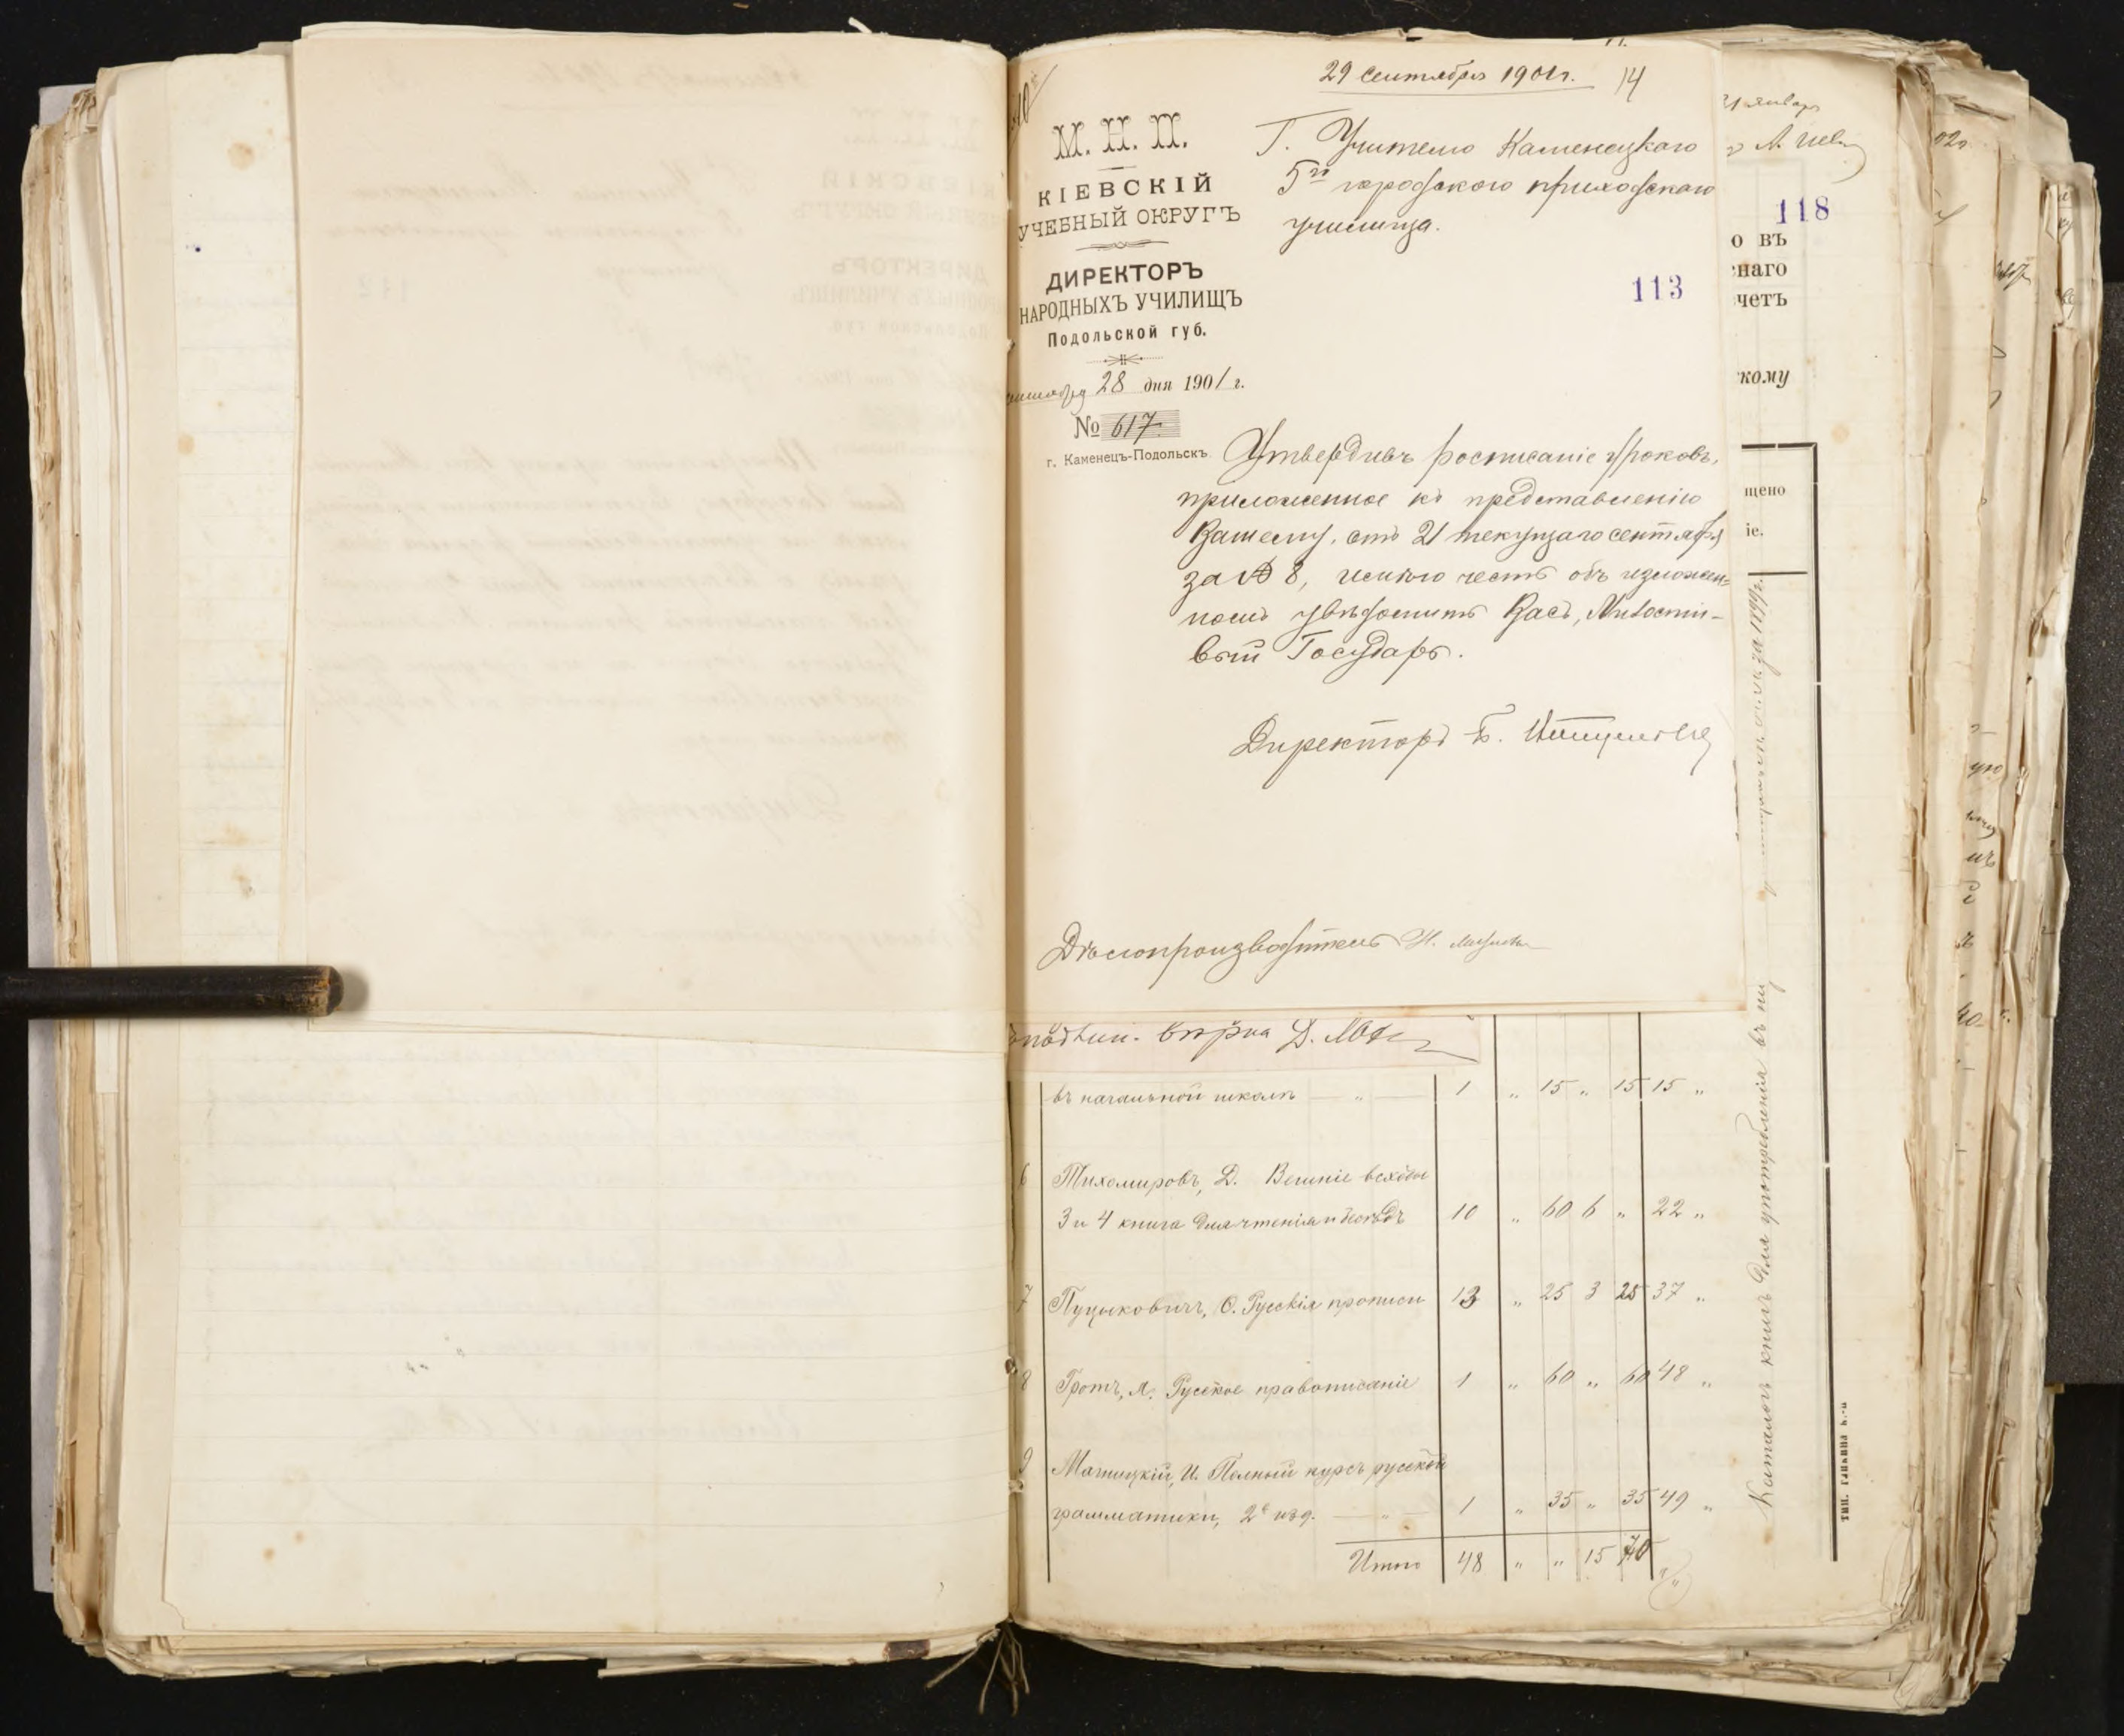 29 сентября 1901 г. 14
М. Н. П.
КІЕВСКІЙ
УЧЕБНЫЙ ОКРУГЪ
ДИРЕКТОРЪ
НАРОДНЫХЪ УЧИЛИЩЪ
Подольской губ.
28 дня 1901 г.
№ 617
г. Каменецъ-Подольскъ
Г. Учителю Каменецкаго
5го городского приходскаго
училища.
113
Утвердивъ росписаніе уроковъ,
приложенное къ представленію
Вашему, отъ 21 текущаго сентября
за № 8, имѣю честь объ изложен-
номъ увѣдомить Васъ, Милости-
вый Государь.
Директоръ
Дѣлопроизводитель Н.
въ начальной школѣ — „ — 1 „ 15 „ 15 15 „
6 Тихомировъ, Д. Вешніе всходы
3 и 4 книга для чтенія и бесѣдъ 10 „ 60 6 „ 22 „
7 Пуцыковичъ, Ѳ. Русскія прописи 13 „ 25 3 25 37 „
8 Гротъ, Я. Русское правописаніе 1 „ 60 „ 60 48 „
9 Магницкій, И. Полный курсъ русской
грамматики, 2е изд. — „ — 1 „ 35 „ 35 49 „
Итого 48 „ „ 15 70
118
о въ
наго
четъ
кому
щено
іе.
Каталогъ книгъ для употребленія въ
за 1899 г.